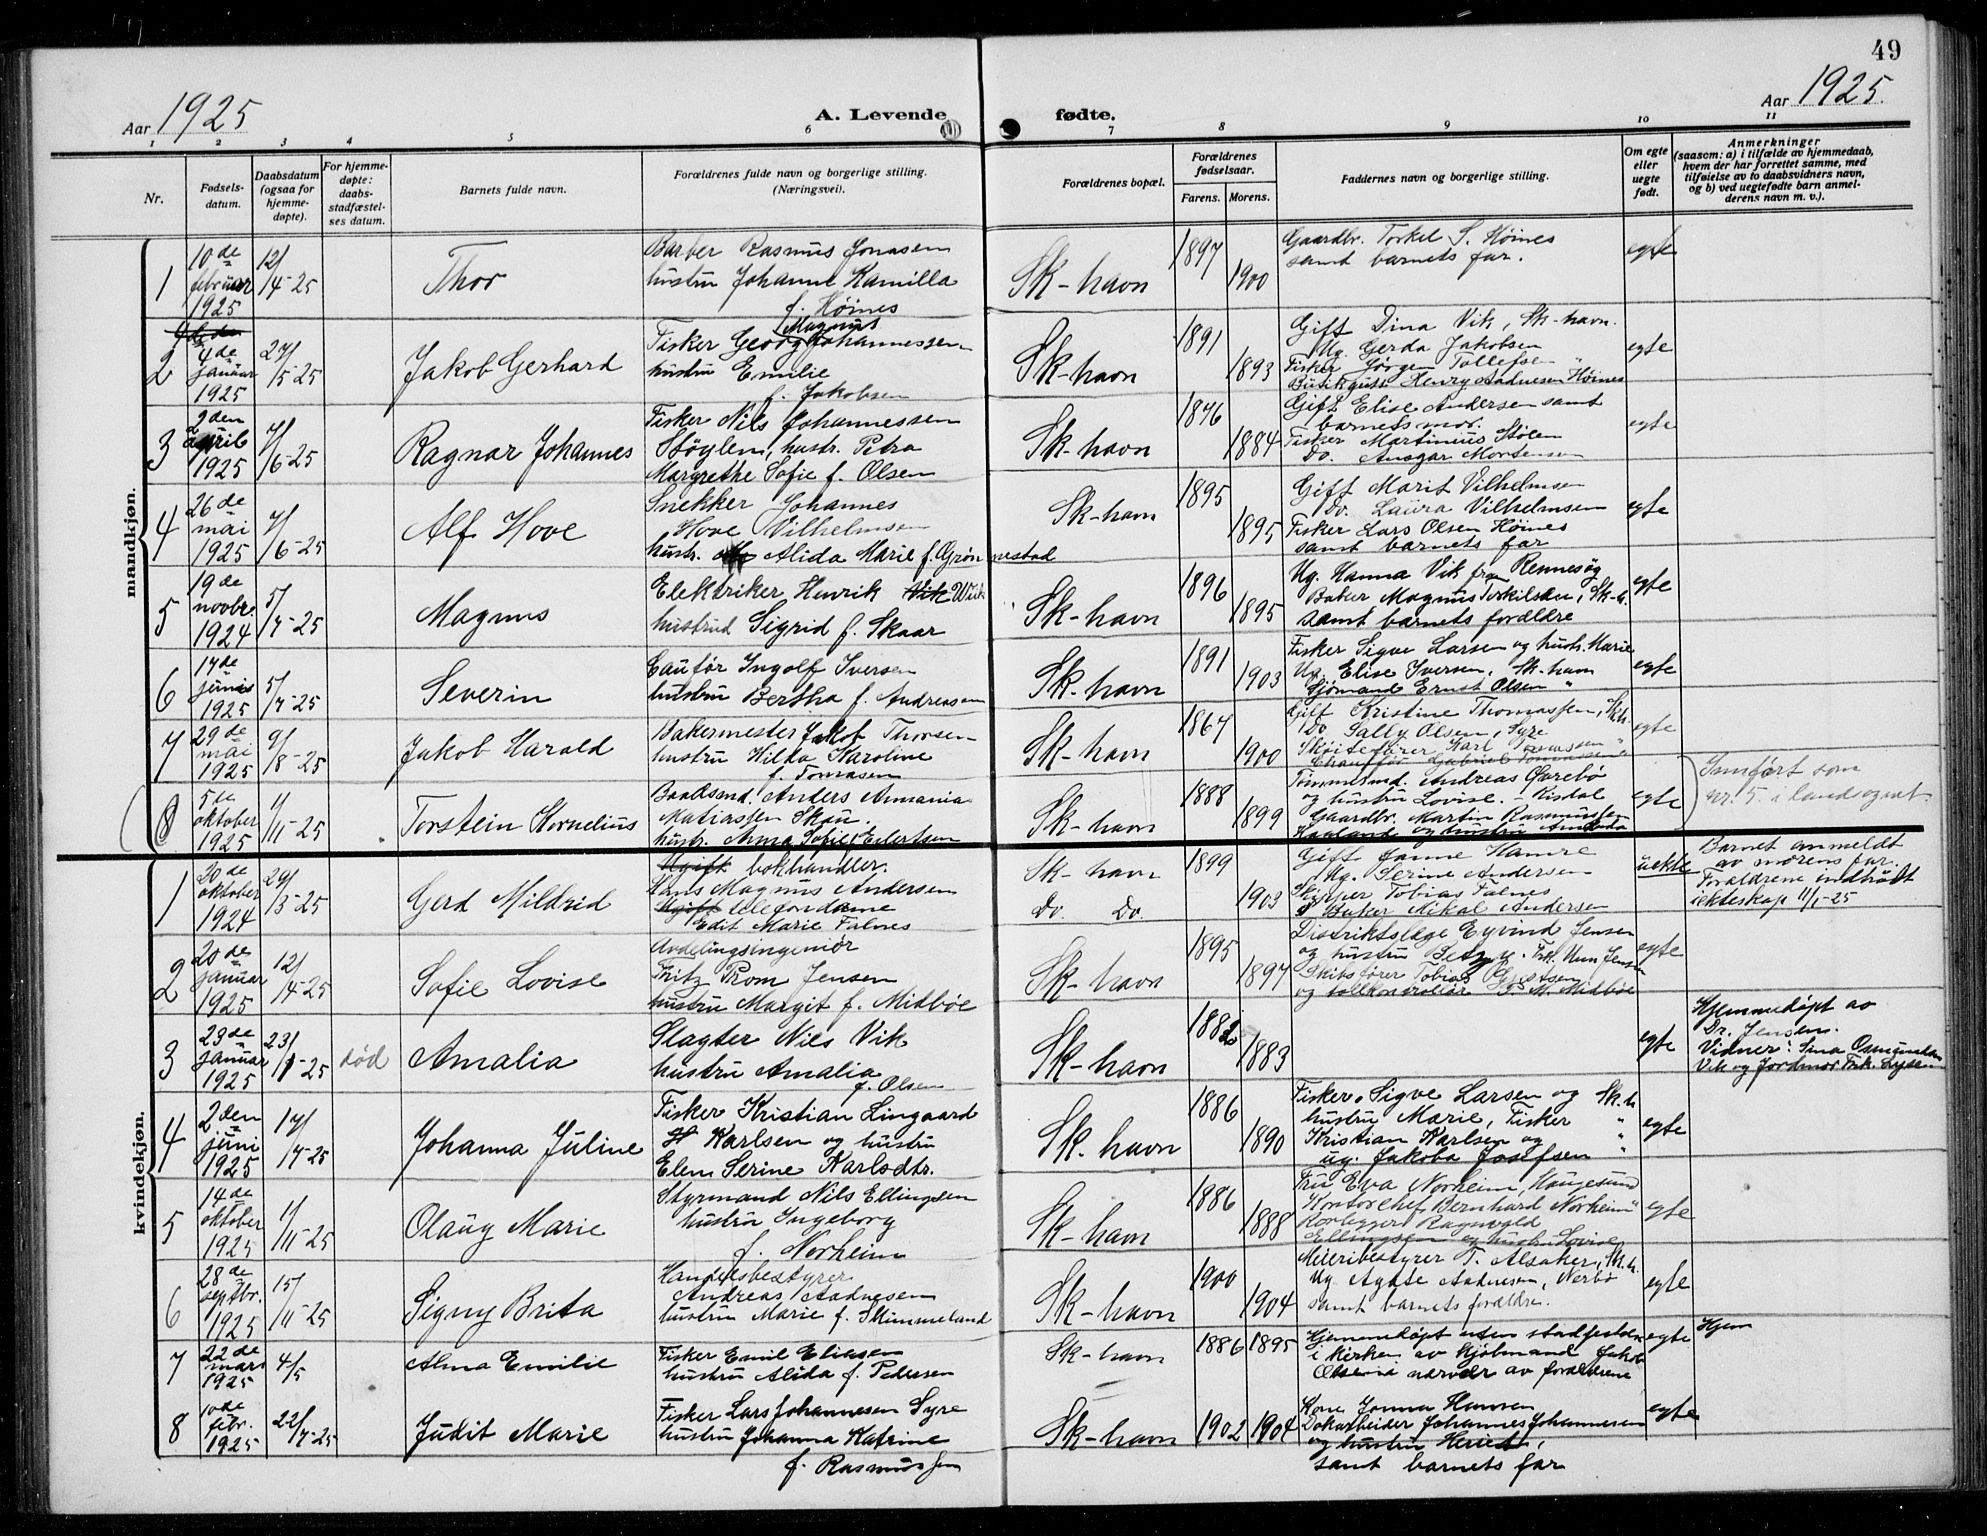 49
Aar 1925
A. Levende fødte.
Aar 1925.
1 2 3 4 5 6 7 8 9 10 11
Nr.
Fødsels-
datum.
Daabsdatum
(ogsaa for
hjemme-
døpte).
For hjemme-
døpte:
daabs-
stadfæstel-
ses datum.
Barnets fulde navn.
Forældrenes fulde navn og borgerlige stilling.
(Næringsvei).
Forældrenes bopæl.
Forældrenes
fødselsaar.
Farens. Morens.
Faddernes navn og borgerlige stilling.
Om egte
eller
uegte
født.
Anmerkninger
(saasom: a) i tilfælde av hjemmedaab,
hvem der har forrettet samme, med
tilføielse av to daabsvidners navn,
og b) ved uegtefødte barn anmel-
derens navn m. v.).
mandkjøn.
1
10de
februar
1925
12/
4-25
Thor
Barber Rasmus Jonasen
hustru Johanne Kamilla
f. Høines
Sk-havn
1897
1900
Gaardbr. Torkel S. Høines
samt barnets far.
egte
2
4de
januar
1925
27/
5-25
Jakob Gerhard
Magnus
Fisker Georg Johannessen
hustru Emilie
f. Jakobsen
Sk-havn
1891
1893
Gift Dina Vik, Sk-havn.
Ug. Gerda Jakobsen
Fisker Jørgen Tollefsen "
Butikgutt Henry Aadnesen Høines
egte
3
2den
april
1925
7/
6-25
Ragnar Johannes
Fisker Nils Johannessen
Støylen, hustr. Petra
Margrethe Sofie f. Olsen
Sk-havn
1876
1884
Gift Elise Andersen samt
barnets mor.
Fisker Martinius Stølen
Do. Ansgar Mortensen
egte
4
26de
mai
1925
7/
6-25
Alf Hove
Snekker Johannes
Hove Vilhelmsen
hustr. Alida Marie f. Grønnestad
Sk-havn
1895
1895
Gift Marit Vilhelmsen
Do. Laura Vilhelmsen
Fisker Lars Olsen Høines
samt barnets far
egte
5
19de
novbr
1924
5/
7-25
Magnus
Elektriker Henrik Vik Wiik
hustrud Sigrid f. Skaar
Sk-havn
1896
1895
Ug. Hanna Vik fra Rennesøy
Baker Magnus Torkilsen, Sk-h.
samt barnets forældre
egte
6
17de
junis
1925
5/
7-25
Severin
Caufør Ingolf Iversen
hustru Bertha f. Andreasen
Sk-havn
1891
1903
Fisker Sigve Larsen og hustr. Marie
Ug. Elise Iversen, Sk-havn
Sjømand Ernst Olsen "
egte
7
29de
mai
1925
9/
8-25
Jakob Harald
Bakermester Jakob Thorsen
hustru Hilda Karoline
f. Tomasen
Sk-havn
1867
1900
Gift Kristine Thomassen, Sk.h.
Do Sally Olsen, Syre
Skøitefører Karl Tomassen "
Chauffør Gabriel Tomassen "
egte
8
5te
oktober
1925
1/
11-25
Torstein Kornelius
Baadsmd. Anders Annania
Matiassen Skau.
hustr. Anna Sofie f. Eilertsen
Sk-havn
1888
1899
Tømmermd. Andreas Øvrebø
og hustru Lovise. - Risdal
Gaardbr. Martin Rasmussen
Haaland og hustru
egte
Innført som
nr. 5. i landsognet.
kvindekjøn.
1
20de
oktober
1924
29/
3-25
Gerd Mildrid
Ugift bokhandler.
Hans Magnus Andersen
Ugift telefondame
Edit Marie Falnes
Sk-havn
Do. Do.
1899
1903
Gift Janne Hamre
Ug. Serine Andersen
Skipper Tobias Falnes
Baker Mikal Andersen
uekte
Barnet anmeldt
av mørens far.
Forældrene indtraadt
i ekteskap 11/1-25
2
20de
januar
1925
12/
4-25
Sofie Lovise
Avdelingsingeniør
Fritz Prom Jensen
hustru Margit f. Midbøe
Sk-havn
1895
1897
Distriktslæge Eyvind Jensen
og hustru Betzy. Frk. Unn Jensen
Skibsfører Tobias
og tollkontrollør M. Midbøe
egte
3
23de
januar
1925
23/
1-25
død
Amalia
Slagter Nils Vik
hustru Amalia
f. Olsen
Sk-havn
1882
1883
egte
Hjemmedøpt av
Dr. Jensen.
Vidner: Sina Osmundsen
Vik og Jordmor Frk.
4
2den
juni
1925
17/
7-25
Johanna Juline
Fisker Kristian Lingaard
H Karlsen og hustru
Elen Serine Karlsdtr.
Sk. havn
1886
1890
Fisker Sigve Larsen og Sk.h
hustru Marie, Fisker "
Kristian Karlsen og "
ug. Jakoba Josefsen "
egte
5
14de
oktober
1925
1/
11-25
Olaug Marie
Styrmand Nils Ellingsen
hustru Ingeborg
f. Norheim
Sk-havn
1886
1888
Fru Eva Norheim, Haugesund
Kontorchef Bernhard Norheim "
Rørlegger Ragnvald
Ellingsen og hustr. Lovise
egte
6
28de
septbr.
1925
15/
11-25
Signy Brita
Handelsbestyrer
Andreas Aadnesen
hustru Marie f. Skimmeland
Sk-havn
1900
1904
Meieribestyrer T. Alsaker, Sk.h.
Ug Agate Aadnesen, Nerbø
samt barnets forældre.
egte
7
22de
mars
1925
4/
5
Alma Emilie
Fisker Emil Eliasen
hustru Alida f. Pedersen
Sk-havn
1886 1895
Hjemmedøpt uten stadfestelse
i kirken av Kjøbmand Jakob
Olsen i nærvær av forældrene
egte
Hjem
8
10de
febr.
1925
22/
7-25
Judit Marie
Fisker Lars Johannesen Syre
hustru Johanna Katrine
f. Rasmussen
Sk-havn
1902 1904
Kone Jonna Hansen
Dokarbeider Johannes Johannesen
og hustru Heriet,
samt barnets far
egte